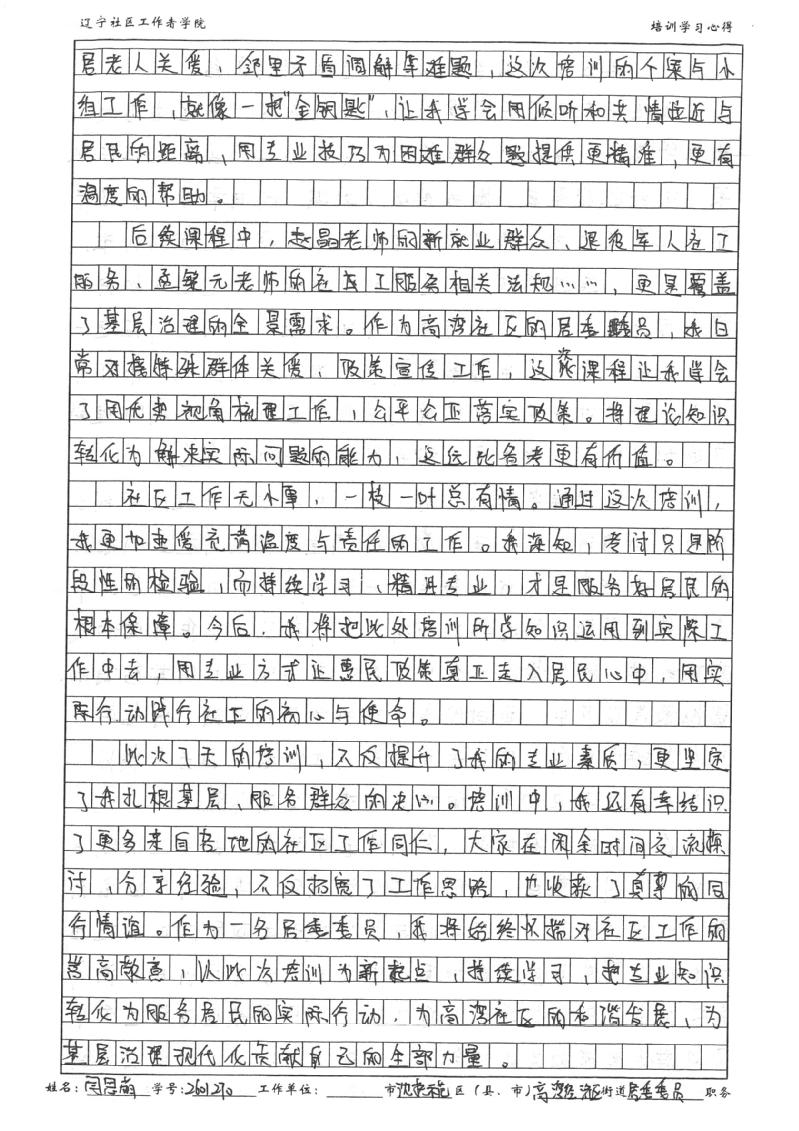 辽宁社区工作者学院 培训学习心得
居老人关爱、邻里矛盾调解等难题,这次培训的个案与小
组工作,就像一把"金钥匙",让我学会用倾听和共情拉近与
居民的距离,用专业技巧为困难群众题提供更精准,更有
温度的帮助。
后续课程中,赵晶老师的新就业群众、退役军人社工
服务、孟繁元老师的社区工服务相关法规……,更是覆盖
了基层治理的全景需求。作为高湾社区的居委委员,我日
常对接特殊群体关爱、政策宣传工作,这次课程让我学会
了用优势视角梳理工作,公平公正落实政策。将理论知识
转化为解决实际问题的能力,这远比备考更有价值。
社区工作无小事,一枝一叶总有情。通过这次培训,
我更加热爱充满温度与责任的工作。我深知,考试只是阶
段性的检验,而持续学习,精进专业,才是服务好居民的
根本保障。今后,我将把此处培训所学知识运用到实际工
作中去,用专业方式让惠民政策真正走入居民心中,用实
际行动践行社工的初心与使命。
此次7天的培训,不仅提升了我的专业素质,更坚定
了我扎根基层、服务群众的决心。培训中,我还有幸结识
了更多来自各地的社区工作同仁,大家在闲余时间交流探
讨,分享经验,不仅拓宽了工作思路,也收获了真挚的同
行情谊。作为一名居委委员,我将始终怀揣对社区工作的
崇高敬意,以此次培训为新起点,持续学习,把专业知识
转化为服务居民的实际行动,为高湾社区的和谐发展、为
基层治理现代化贡献自己的全部力量。
姓名: 学号:2601210 工作单位: 市 区(县、市) 街道居委委员 职务